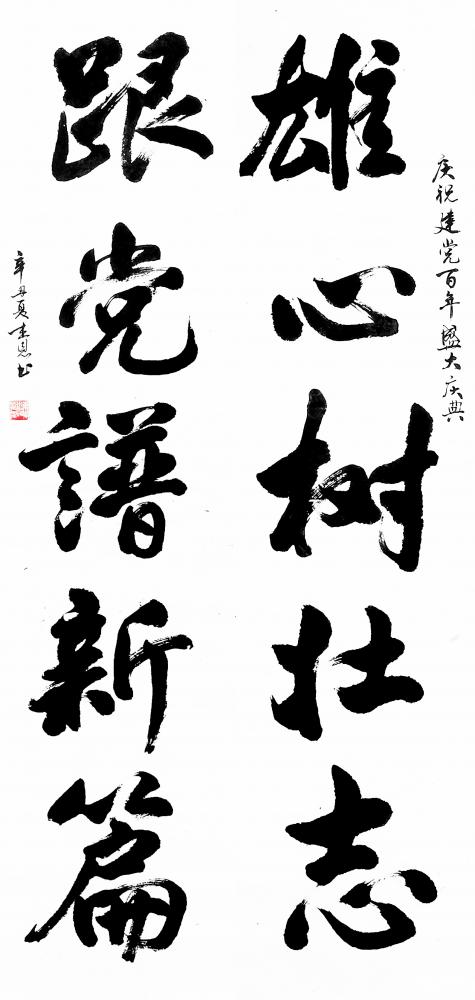 庆祝建党百年盛大庆典
雄心树壮志
跟党譜新篇
辛丑夏圭恩书